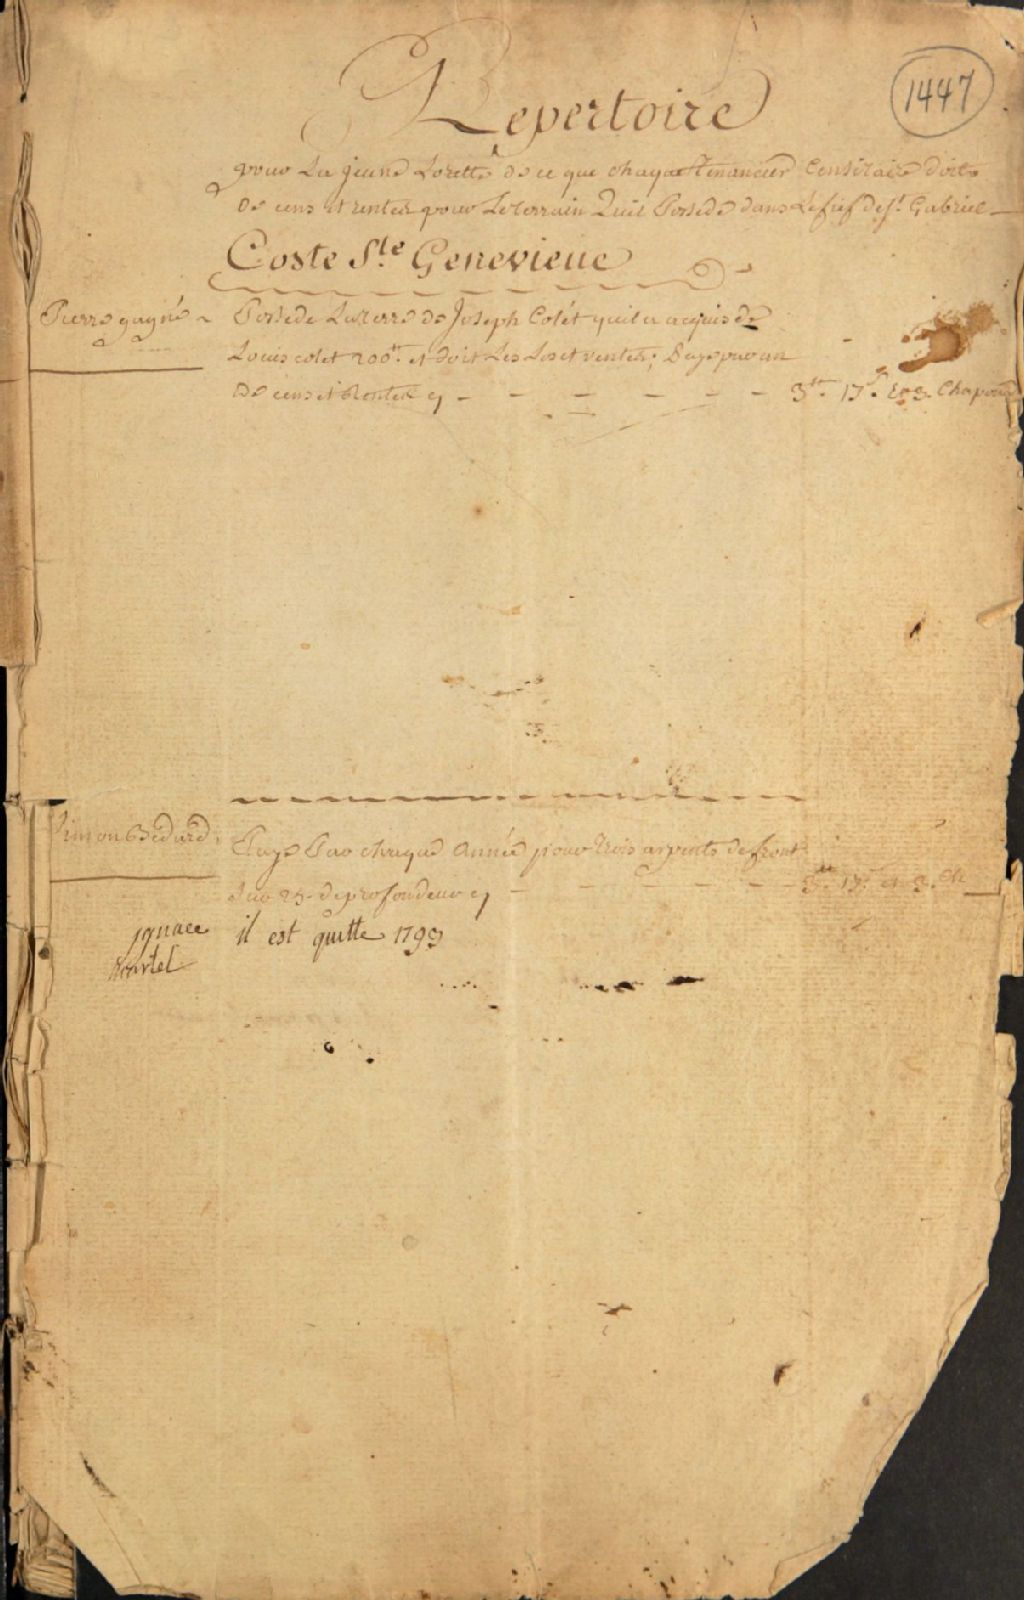 1447
Repertoire
pour La jeune Lorette de ce que chaque tenancier Censitaire doit
De cens et rentes pour Le terrain Quil Possede dans Le fief de St. Gabriel
Coste Ste Genevieue
Pierre gagné
Possede La terre de Joseph Colét quil a acquis de
Louis colet 200tt et doit Les Los et ventes; Paye par an
De cens et Rentes cy - - - - - - 3tt. 17s. Et 3. Chapons
Simon Bédard
Paye Par chaque Année pour trois arpents de front
Sur 25. de profondeur cy - - - - - 3tt 17s et 3. Ch
jgnace
il est quitte 1793